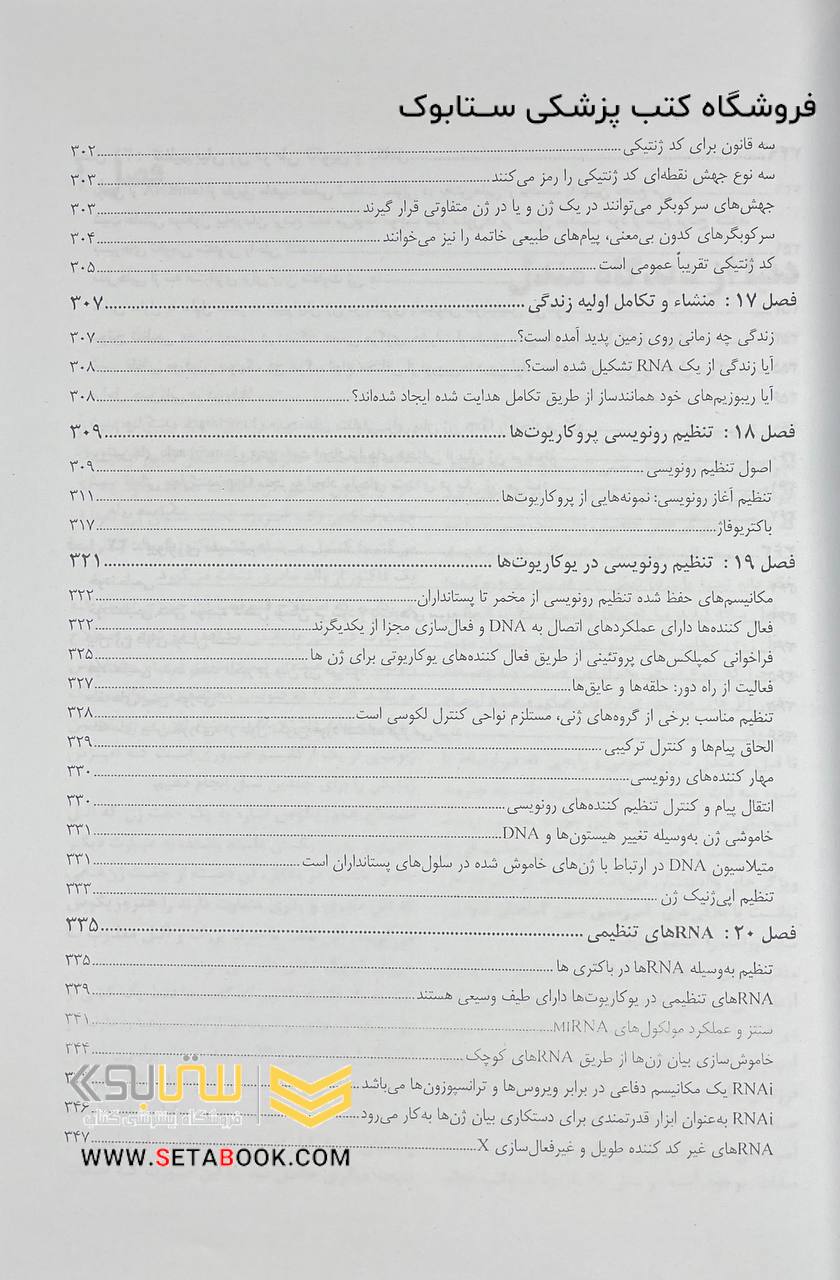 فروشگاه کتب پزشکی ستابوک
سه قانون برای کد ژنتیکی ۳۰۲
سه نوع جهش نقطه‌ای کد ژنتیکی را رمز می‌کنند ۳۰۳
جهش‌های سرکوبگر می‌توانند در یک ژن و یا در ژن متفاوتی قرار گیرند ۳۰۳
سرکوبگرهای کدون بی‌معنی، پیام‌های طبیعی خاتمه را نیز می‌خوانند ۳۰۴
کد ژنتیکی تقریباً عمومی است ۳۰۵
فصل ۱۷ : منشاء و تکامل اولیه زندگی ۳۰۷
زندگی چه زمانی روی زمین پدید آمده است؟ ۳۰۷
آیا زندگی از یک RNA تشکیل شده است؟ ۳۰۸
آیا ریبوزیم‌های خود همانندساز از طریق تکامل هدایت شده ایجاد شده‌اند؟ ۳۰۸
فصل ۱۸ : تنظیم رونویسی پروکاریوت‌ها ۳۰۹
اصول تنظیم رونویسی ۳۰۹
تنظیم آغاز رونویسی: نمونه‌هایی از پروکاریوت‌ها ۳۱۱
باکتریوفاژ ۳۱۷
فصل ۱۹ : تنظیم رونویسی در یوکاریوت‌ها ۳۲۱
مکانیسم‌های حفظ شده تنظیم رونویسی از مخمر تا پستانداران ۳۲۲
فعال کننده‌ها دارای عملکردهای اتصال به DNA و فعال‌سازی مجزا از یکدیگرند ۳۲۲
فراخوانی کمپلکس‌های پروتئینی از طریق فعال کننده‌های یوکاریوتی برای ژن ها ۳۲۵
فعالیت از راه دور: حلقه‌ها و عایق‌ها ۳۲۷
تنظیم مناسب برخی از گروه‌های ژنی، مستلزم نواحی کنترل لکوسی است ۳۲۸
الحاق پیام‌ها و کنترل ترکیبی ۳۲۹
مهار کننده‌های رونویسی ۳۳۰
انتقال پیام و کنترل تنظیم کننده‌های رونویسی ۳۳۰
خاموشی ژن به‌وسیله تغییر هیستون‌ها و DNA ۳۳۱
متیلاسیون DNA در ارتباط با ژن‌های خاموش شده در سلول‌های پستانداران است ۳۳۱
تنظیم اپی‌ژنیک ژن ۳۳۳
فصل ۲۰ : RNAهای تنظیمی ۳۳۵
تنظیم به‌وسیله RNAها در باکتری ها ۳۳۵
RNAهای تنظیمی در یوکاریوت‌ها دارای طیف وسیعی هستند ۳۳۹
سنتز و عملکرد مولکول‌های MiRNA ۳۴۱
خاموش‌سازی بیان ژن‌ها از طریق RNAهای کوچک ۳۴۴
RNAi یک مکانیسم دفاعی در برابر ویروس‌ها و ترانسپوزون‌ها می‌باشد
RNAi به‌عنوان ابزار قدرتمندی برای دستکاری بیان ژن‌ها به‌کار می‌رود ۳۴۶
RNAهای غیر کد کننده طویل و غیرفعال‌سازی X ۳۴۷
ستابوک
فروشگاه اینترنتی کتاب
WWW.SETABOOK.COM